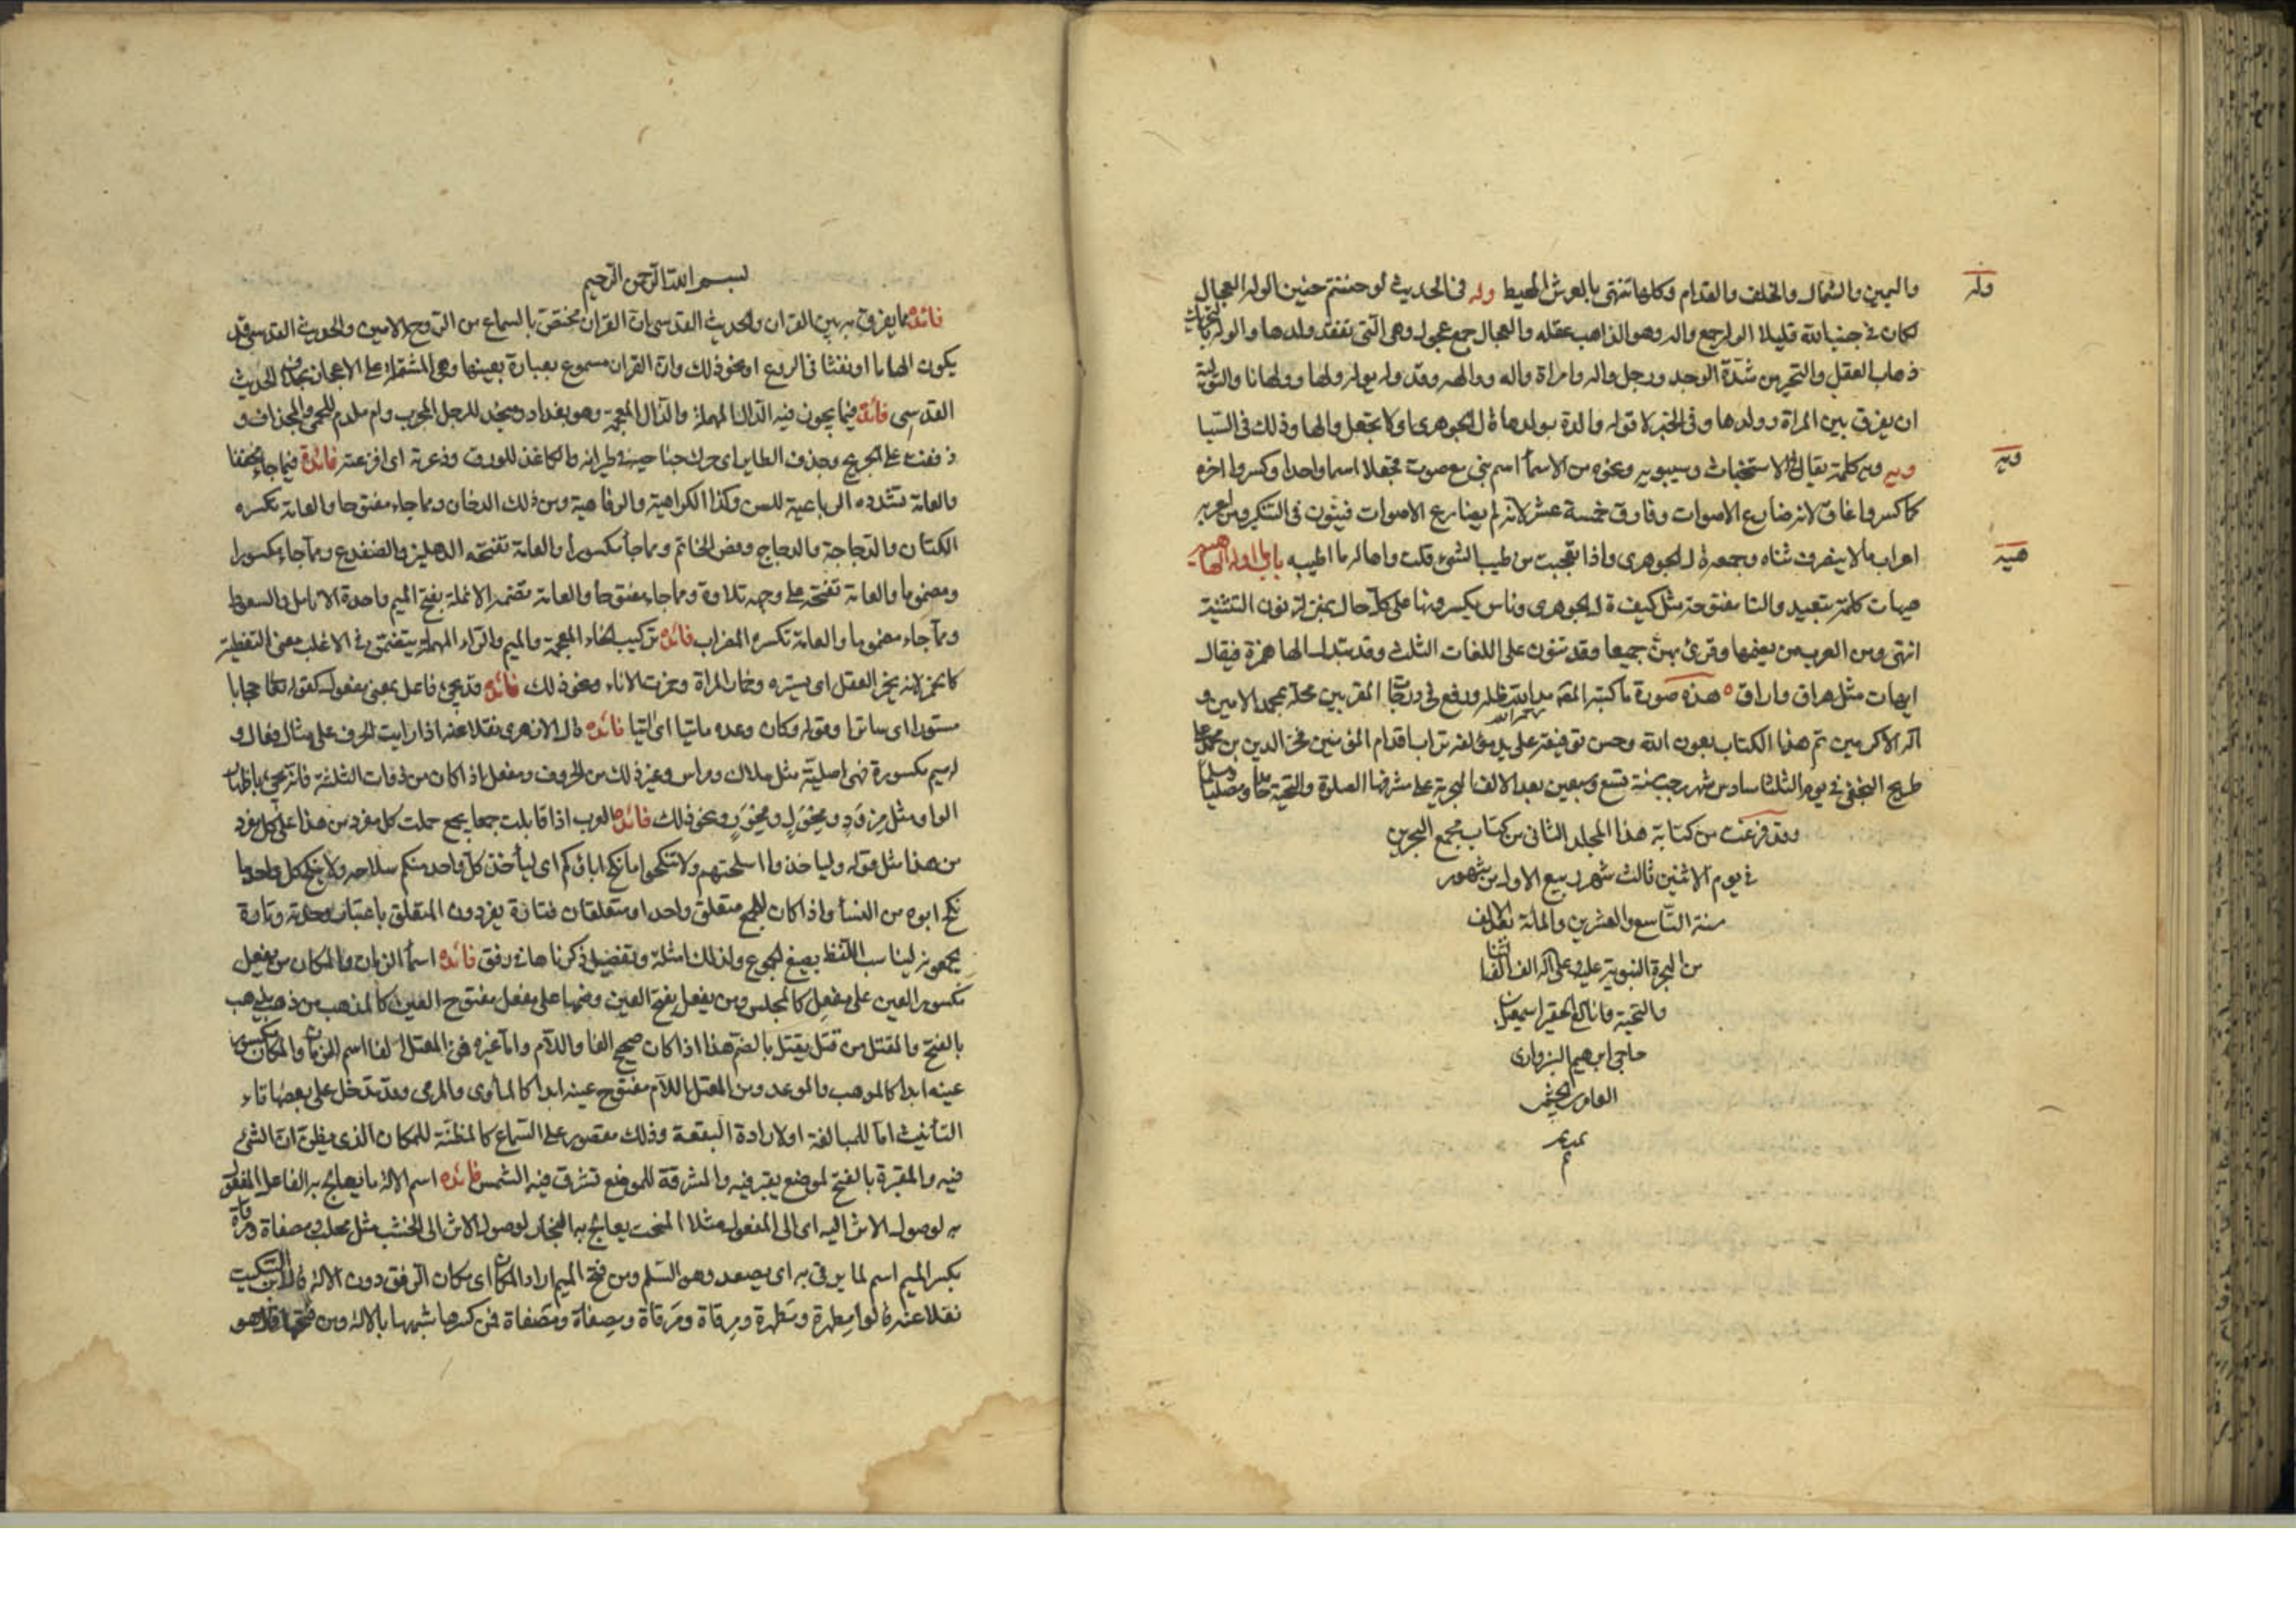 وله
واليمين والشمال والخلف والقدام وكلها تنتهى بالعرش المحيط وله فى الحديث لو حننتم حنين الوله العجال
لكان فى جنب الله قليلا الوله جمع واله وهو الذاهب عقله والعجال جمع عجول وهى التى تفقد ولدها والوله بالتحريك
ذهاب العقل والتحير من شدة الوجد ورجل واله وامراة واله ووالهه وقد وله يوله ولها وولهانا والتوليه
ان يفرق بين المراة وولدها وفى الخبر لا توله والدة بولدها قال الجوهرى اى لا تجعل والها وذلك فى السبايا
ويه
ويه ويه كلمة يقال فى الاستحثاث وسيبويه ونحوه من الاسماء اسم بنى مع صوت فجعلا اسما واحدا وكسروا اخره
كما كسروا غاق لانه ضارع الاصوات وفارق خمسة عشر لانه لم يضارع الاصوات فينون فى التنكير ومن العرب من يعربه
هيه
اعراب ما لا ينصرف ثناه وجمعه قال الجوهرى واذا تعجبت من طيب الشىء قلت واها له ما اطيبه باب ما اوله الهاء هيه
هيهات كلمة تبعيد والتا مفتوحة مثل كيف قال الجوهرى وناس يكسرونها على كل حال بمنزلة نون التثنية
انتهى ومن العرب من يضمها وقرئ بهن جميعا وقد تنون على اللغات الثلث وقد تبدل الها همزة فيقال
ايهات مثل هراق واراق هذه صورة ما كتبه المصنف مد الله ظله ورفع فى درجات المقربين محله بمحمد الامين و
اله الاكرمين تم هذا الكتاب بعون الله وحسن توفيقه على يد مؤلفه تراب اقدام المؤمنين فخر الدين بن محمد على
طريح النجفى فى يوم الثلثا سادس شهر رجب سنة تسع وسبعين بعد الالف الهجرية على مشرفها الصلوة والتحية حامدا ومصليا ومسلما
وقد فرغت من كتابة هذا المجلد الثانى من كتاب مجمع البحرين
فى يوم الاثنين ثالث شهر ربيع الاول من شهور
سنة التاسع والعشرين والمائة بعد الالف
من الهجرة النبوية عليه وعلى اله الف الف الثنا
والتحية وانا الحقير اسمعيل بن
حاجى ابرهيم السبزوارى
بسم الله الرحمن الرحيم
فائدة مما يفرق به بين القران والحديث القدسى ان القران مختص بالسماع من الروح الامين والحديث القدسى قد
يكون الهاما او نفثا فى الروع او نحو ذلك وان القران مسموع بعبارة بعينها وهى المشتملة على الاعجاز بخلاف الحديث
القدسى فائدة فيما يجوز فيه الدال المهملة والذال المعجمة وهو بغداد ومنجذ للرجل المجرب وام ملدم للحمى والمجذاف و
ذففت على الجريح وجذف الطاير اى حرك جناحيه فى طيرانه والكاغذ للورق وذعرته اى افزعته فائدة فيما جاء مخففا
والعامة تشدده الرباعية للسن وكذا الكراهية والرفاهية ومن ذلك الدخان ومما جاء مفتوحا والعامة تكسره
الكتان والدجاجة والدجاج وفص الخاتم ومما جاء مكسورا والعامة تفتحه الدهليز والضفدع ومما جاء مكسورا
ومضموما والعامة تفتحه على وجهه تلاوة ومما جاء مفتوحا والعامة تضمه الانملة بفتح الميم واحدة الانامل والسعوط
ومما جاء مضموما والعامة تكسره المضراب فائدة تركيب الخاء المعجمة والميم والراء المهملة يتضمن فى الاغلب معنى التغطية
كالخمر لانه يخمر العقل اى يستره وخمار المراة وخمرت الاناء ونحو ذلك فائدة قد يجئ فاعل بمعنى مفعول كقوله تعالى حجابا
مستورا اى ساترا وقوله وكان وعده ماتيا اى اتيا فائدة قال الازهرى نقلا عنه اذا رايت الحرف على مثال فعال و
الميم مكسورة فهى اصلية مثل ملاك ومراس وغير ذلك من الحروف ومفعل اذا كان من ذوات الثلثة فانه يجئ باظهار
الواو مثل مزود ومحول ومحور ونحو ذلك فائدة العرب اذا قابلت جمعا بجمع حملت كل مفرد من هذا على كل مفرد
من هذا مثل قوله ولياخذوا اسلحتهم ولا تنكحوا ما نكح اباؤكم اى لياخذ كل واحد منكم سلاحه ولا ينكح كل واحد ما
نكح ابوه من النسا واذا كان للجمع متعلق واحد او متعلقان فتارة يفردون المتعلق باعتبار وحدته وتارة
يجمعونه ليناسب اللفظ بصيغ الجموع ولذلك امثلة وتفصيل ذكرناها فى رفق فائدة اسما الزمان والمكان من يفعل
مكسور العين على مفعل كالمجلس ومن يفعل بفتح العين وضمها على مفعل مفتوح العين كالمذهب من ذهب يذهب
بالفتح والمقتل من قتل يقتل بالضم هذا اذا كان صحيح الفا واللام واما غيره فمن المعتل الفا اسم الزمان والمكان مكسور
عينه ابدا كالموهب والموعد ومن المعتل اللام مفتوح عينه ابدا كالماوى والمرمى وقد تدخل على بعضها تاء
التأنيث اما للمبالغة او لارادة البقعة وذلك مقصور على السماع كالمظنة للمكان الذى يظن ان الشئ
فيه والمقبرة بالفتح لموضع يقبر فيه والمشرقة للموضع تشرق فيه الشمس فائدة اسم الالة ما يعالج به الفاعل المفعول
به لوصول الاثر اليه اى الى المفعول مثلا المنحت يعالج به النجار لوصول الاثر الى الخشب مثل محلب ومصفاة ومرقاة
بكسر الميم اسم لما يرقى به اى يصعد وهو السلم ومن فتح الميم اراد المكان اى مكان الرقى دون الالة قال ابن السكيت
نقلا عنه قالوا مطهرة ومطهرة ومرقاة ومرقاة ومصفاة ومصفاة فمن كسرها شبهها بالالة ومن فتحها قال هو